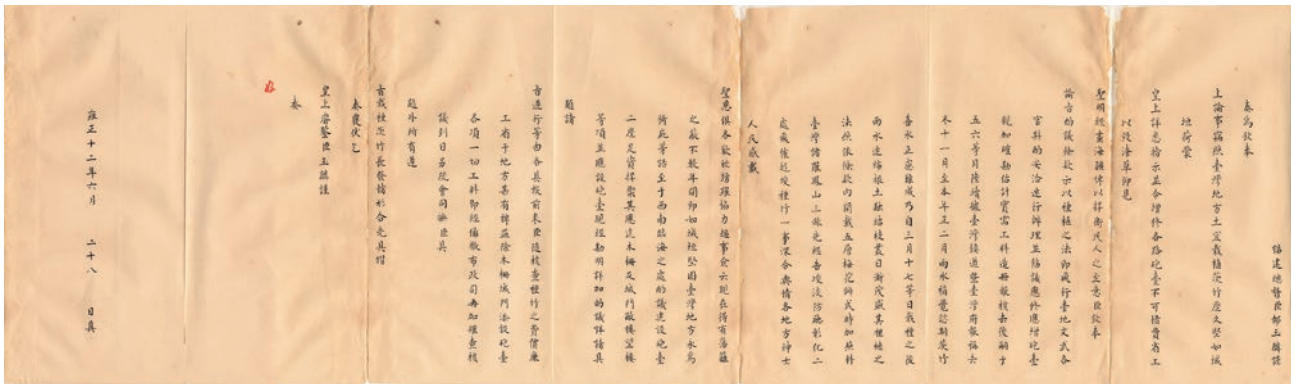 福建總督臣郝玉麟謹
奏為欽奉
上諭事竊照臺灣地方土宜栽植莿竹歷久堅如城
垣荷蒙
皇上詳悉指示並令增修各路砲臺不可惜費省工
以從潦草仰見
聖明經畫海疆俾以捍衛民人之至意臣欽奉
諭旨酌議條款示以種植之法即飛行臺地文武各
官料酌安洽進行辦理並飭議應修應增砲臺
親加確勘估計實需工料造冊報核去後嗣于
五六等月陸續據臺灣鎮道暨臺灣府報稱去
冬十一月至本年正二月雨水稀覺認期莿竹
喜水正慮難成乃自三月十七等日栽種之後
雨水連綿根土融洽枝叢日漸茂盛其種植之
法照依條款內開載五層梅花鋪式時加照料
臺灣諸羅鳳山三縣先經告竣淡防廳彰化二
處續催趕竣種竹一事深合輿情各地方紳士
人民感戴
聖恩俱各歡欣踴躍協力趨事僉云現在得有藩籬
之蔽不數年間即如城垣堅固臺灣地方永為
等語至于西南臨海之處酌議建設砲臺
二座足資捍禦其應建木柵及城門敵樓望樓
等項並應設砲臺現經勘明詳加酌議詳請具
題請
旨遵行等由各具報前來臣隨核查種竹之費價廉
工省于地方甚有裨益除木柵城門添設砲臺
各項一切工料即經備檄布政司再加確查核
議到日另疏會同臣具
題外所有遵
旨栽種莿竹長發情形合先具摺
奏覆伏乞
皇上睿鑒臣玉麟謹
奏
雍正十二年六月 二十八 日具